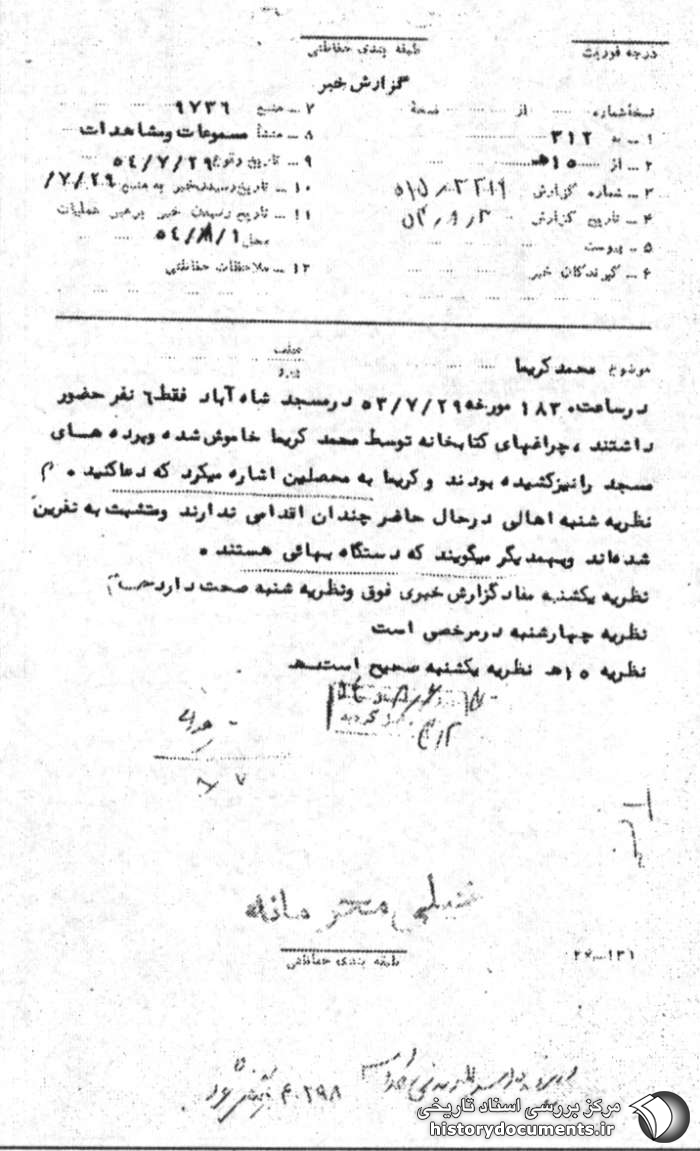 درجه فوریت
طبقه بندی حفاظتی
گزارش خبر
نسخه شماره از نسخه
۱ ــ به ۳۱۲
۲ ــ از ۱۵هـ
۳ ــ شماره گزارش
۴ ــ تاریخ گزارش
۵ ــ پیوست
۶ ــ گیرندگان خبر
۷ ــ منبع ۹۷۳۶
۸ ــ منشأ مسموعات ومشاهدات
۹ ــ تاریخ وقوع ۵۴/۷/۲۹
۱۰ ــ تاریخ رسیدن خبر به منبع ۷/۲۹/
۱۱ ــ تاریخ رسیدن خبر برهبر عملیات
محل ۵۴/۸/۱
۱۲ ــ ملاحظات حفاظتی
موضوع محمد کریما
عطف
پیرو
درساعت ۱۸۳۰ مورخه ۵۳/۷/۲۹ درمسجد شاه آباد فقط ۶ نفر حضور
داشتند ، چراغهای کتابخانه توسط محمد کریما خاموش شده وپرده های
مسجد رانیز کشیده بودند و کریما به محصلین اشاره میکرد که دعا کنید . م
نظریه شنبه اهالی درحال حاضر چندان اقدامی ندارند ومتشبث به نفرین
شده‌اند وبهمدیگر میگویند که دستگاه بهائی هستند .
نظریه یکشنبه مفاد گزارش خبری فوق ونظریه شنبه صحت دارد
نظریه چهارشنبه درمرخصی است
نظریه ۱۵هـ نظریه یکشنبه صحیح است
خیلی محرمانه
طبقه بندی حفاظتی
۲۴ــ۱۳۱
۴۰۲۹۸
مرکز بررسی اسناد تاریخی
historydocuments.ir